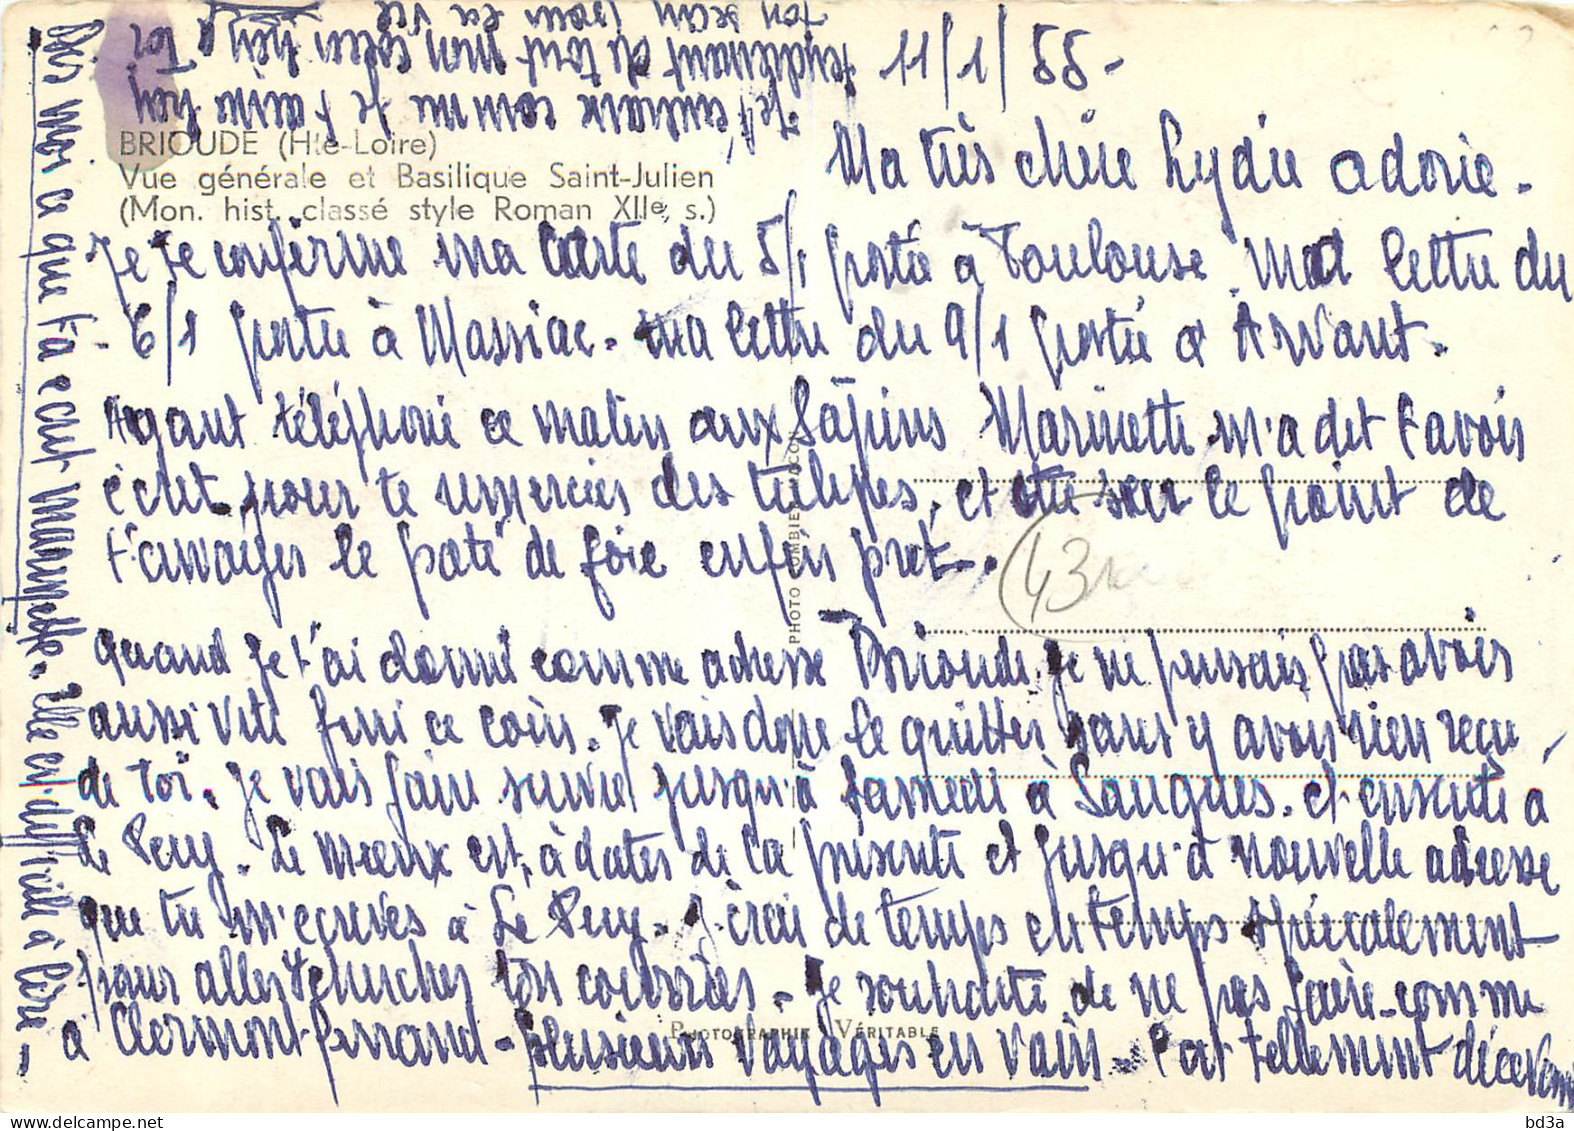 11/1/55 -
BRIOUDE (Hte-Loire)
Vue générale et Basilique Saint-Julien
(Mon. hist. classé style Roman XIIe s.)
Ma très chère Lydie adorée.
Je te confirme ma carte du 5/1 postée à Toulouse. Ma lettre du
6/1 postée à Massiac. Ma lettre du 9/1 postée à Arvant.
Ayant téléphoné ce matin aux Sapins Marinette m'a dit t'avoir
écrit pour te remercier des tulipes, et être sur le point de
t'envoyer le paté de foie enfin prêt.
(43
Quand je t'ai donné comme adresse Brioude je ne pensais pas avoir
aussi vite fini ce coin. Je vais donc le quitter sans y avoir rien reçu
de toi. Je vais faire suivre jusqu'à samedi à Saugues. et ensuite à
Le Puy. Le mieux est, à dater de la présente et jusqu'à nouvelle adresse
que tu m'écrives à Le Puy. J'irai de temps en temps spécialement
pour aller chercher ton courrier - Je souhaite de ne pas faire comme
à Clermont-Ferrand - plusieurs voyages en vain - C'est tellement décevant
Dis moi ce que t'a écrit Marinette. Elle est difficile à lire -
Je t'embrasse comme je t'aime bien
tendrement du tout mon cœur bien à Toi
ton
PHOTO COMBIER MACON
PHOTOGRAPHIE VÉRITABLE
bd3a